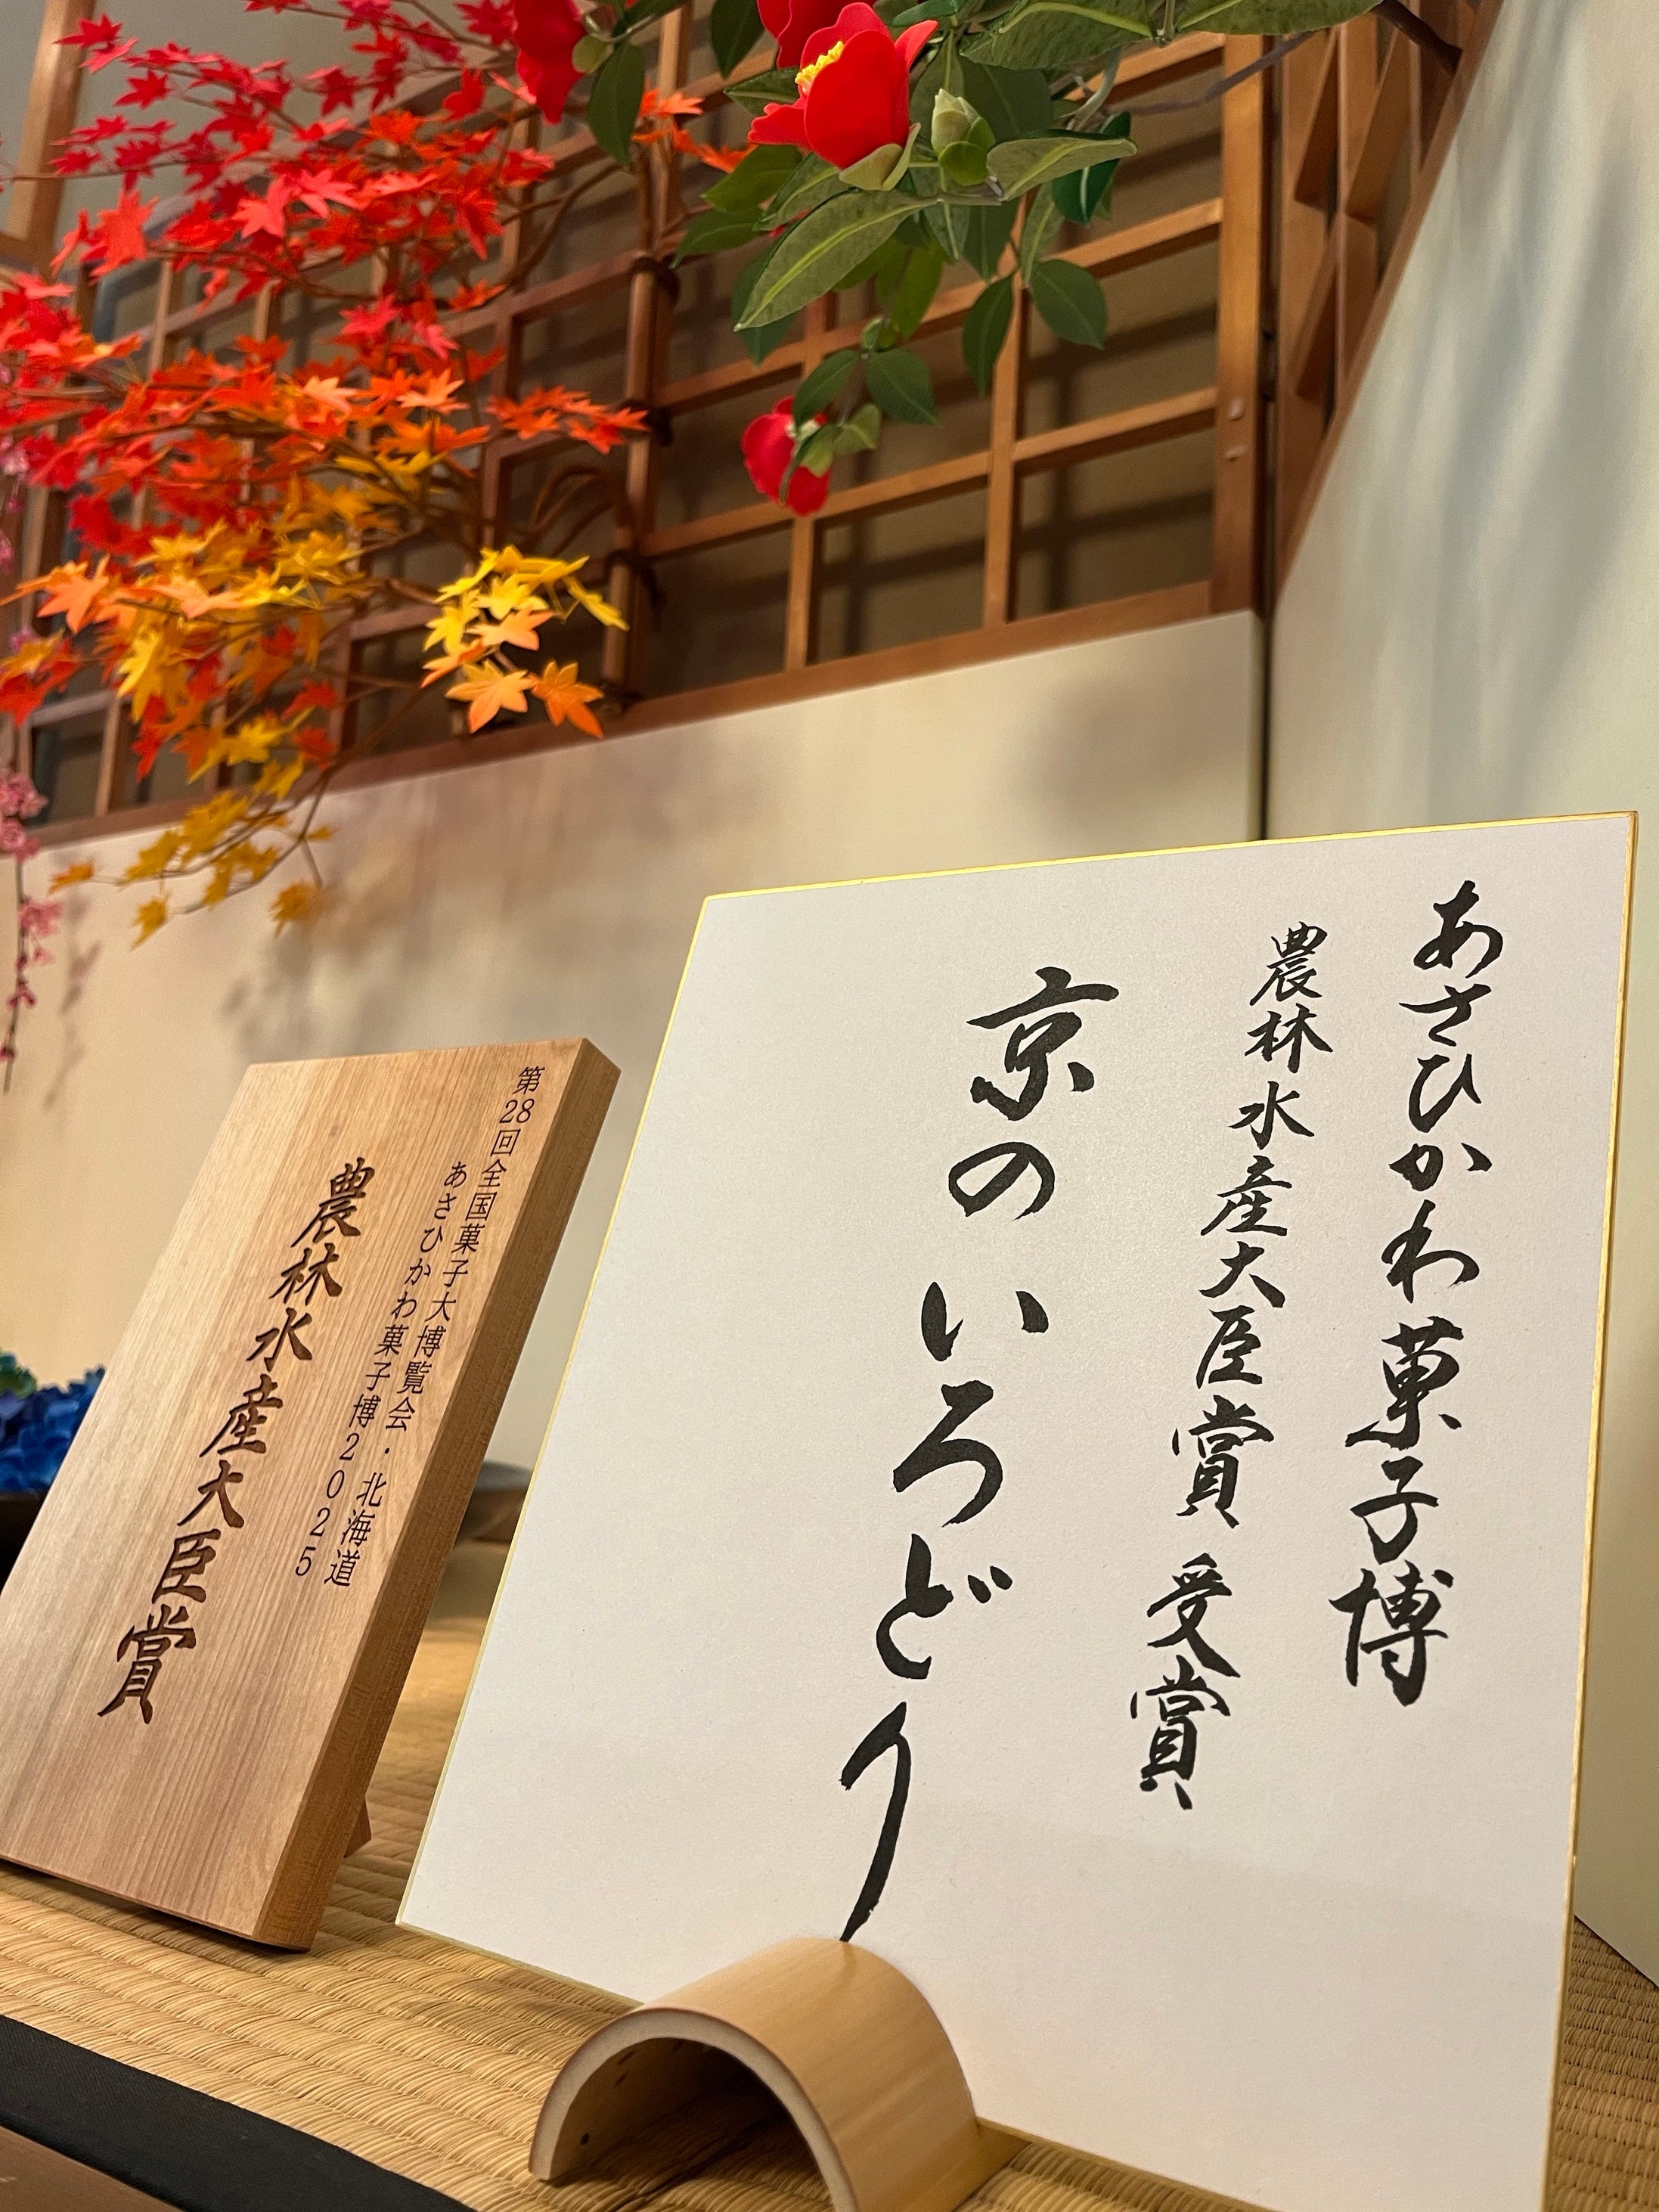 あさひかわ菓子博
農林水産大臣賞 受賞
京の いろどり
第28回全国菓子大博覧会・北海道
あさひかわ菓子博2025
農林水産大臣賞